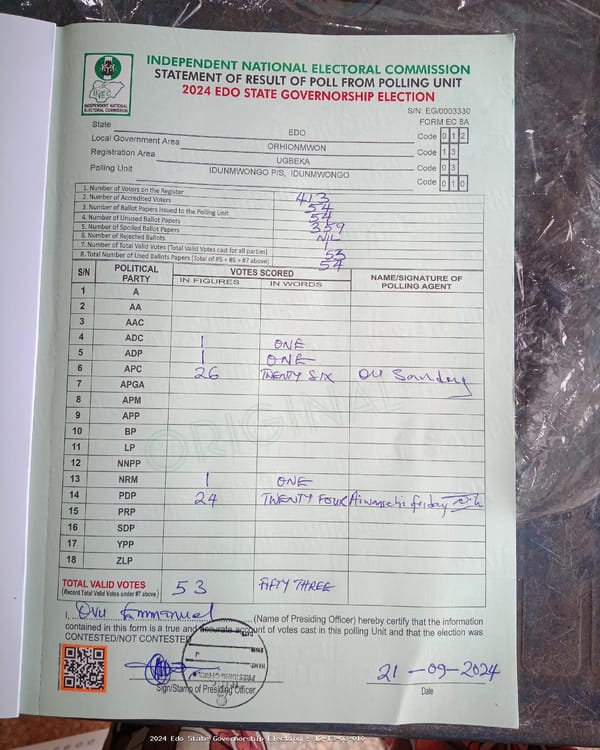 INDEPENDENT NATIONAL ELECTORAL COMMISSION
STATEMENT OF RESULT OF POLL FROM POLLING UNIT
2024 EDO STATE GOVERNORSHIP ELECTION
INDEPENDENT NATIONAL ELECTORAL COMMISSION
S/N: EG/0003330
FORM EC 8A
State EDO Code 0 1 2
Local Government Area ORHIONMWON Code 1 3
Registration Area UGBEKA Code 0 3
Polling Unit IDUNMWONGO P/S, IDUNMWONGO Code 0 1 0
1. Number of Voters on the Register 413
2. Number of Accredited Voters 54
3. Number of Ballot Papers Issued to the Polling Unit
4. Number of Unused Ballot Papers 359
5. Number of Spoiled Ballot Papers NIL
6. Number of Rejected Ballots 1
7. Number of Total Valid Votes (Total Valid Votes cast for all parties) 53
8. Total Number of Used Ballots Papers (Total of #5 + #6 + #7 above) 54
S/N POLITICAL PARTY VOTES SCORED NAME/SIGNATURE OF POLLING AGENT
IN FIGURES IN WORDS
1 A
2 AA
3 AAC
4 ADC 1 ONE
5 ADP 1 ONE
6 APC 26 TWENTY SIX Sunday
7 APGA
8 APM
9 APP
10 BP
11 LP
12 NNPP
13 NRM 1 ONE
14 PDP 24 TWENTY FOUR friday
15 PRP
16 SDP
17 YPP
18 ZLP
ORIGINAL
TOTAL VALID VOTES 53 FIFTY THREE
(Record Total Valid Votes under #7 above)
I, Ovu Emmanuel (Name of Presiding Officer) hereby certify that the information
contained in this form is a true and accurate account of votes cast in this polling Unit and that the election was
CONTESTED/NOT CONTESTED
21-09-2024
Sign/Stamp of Presiding Officer
Date
2024 Edo State Governorship Election